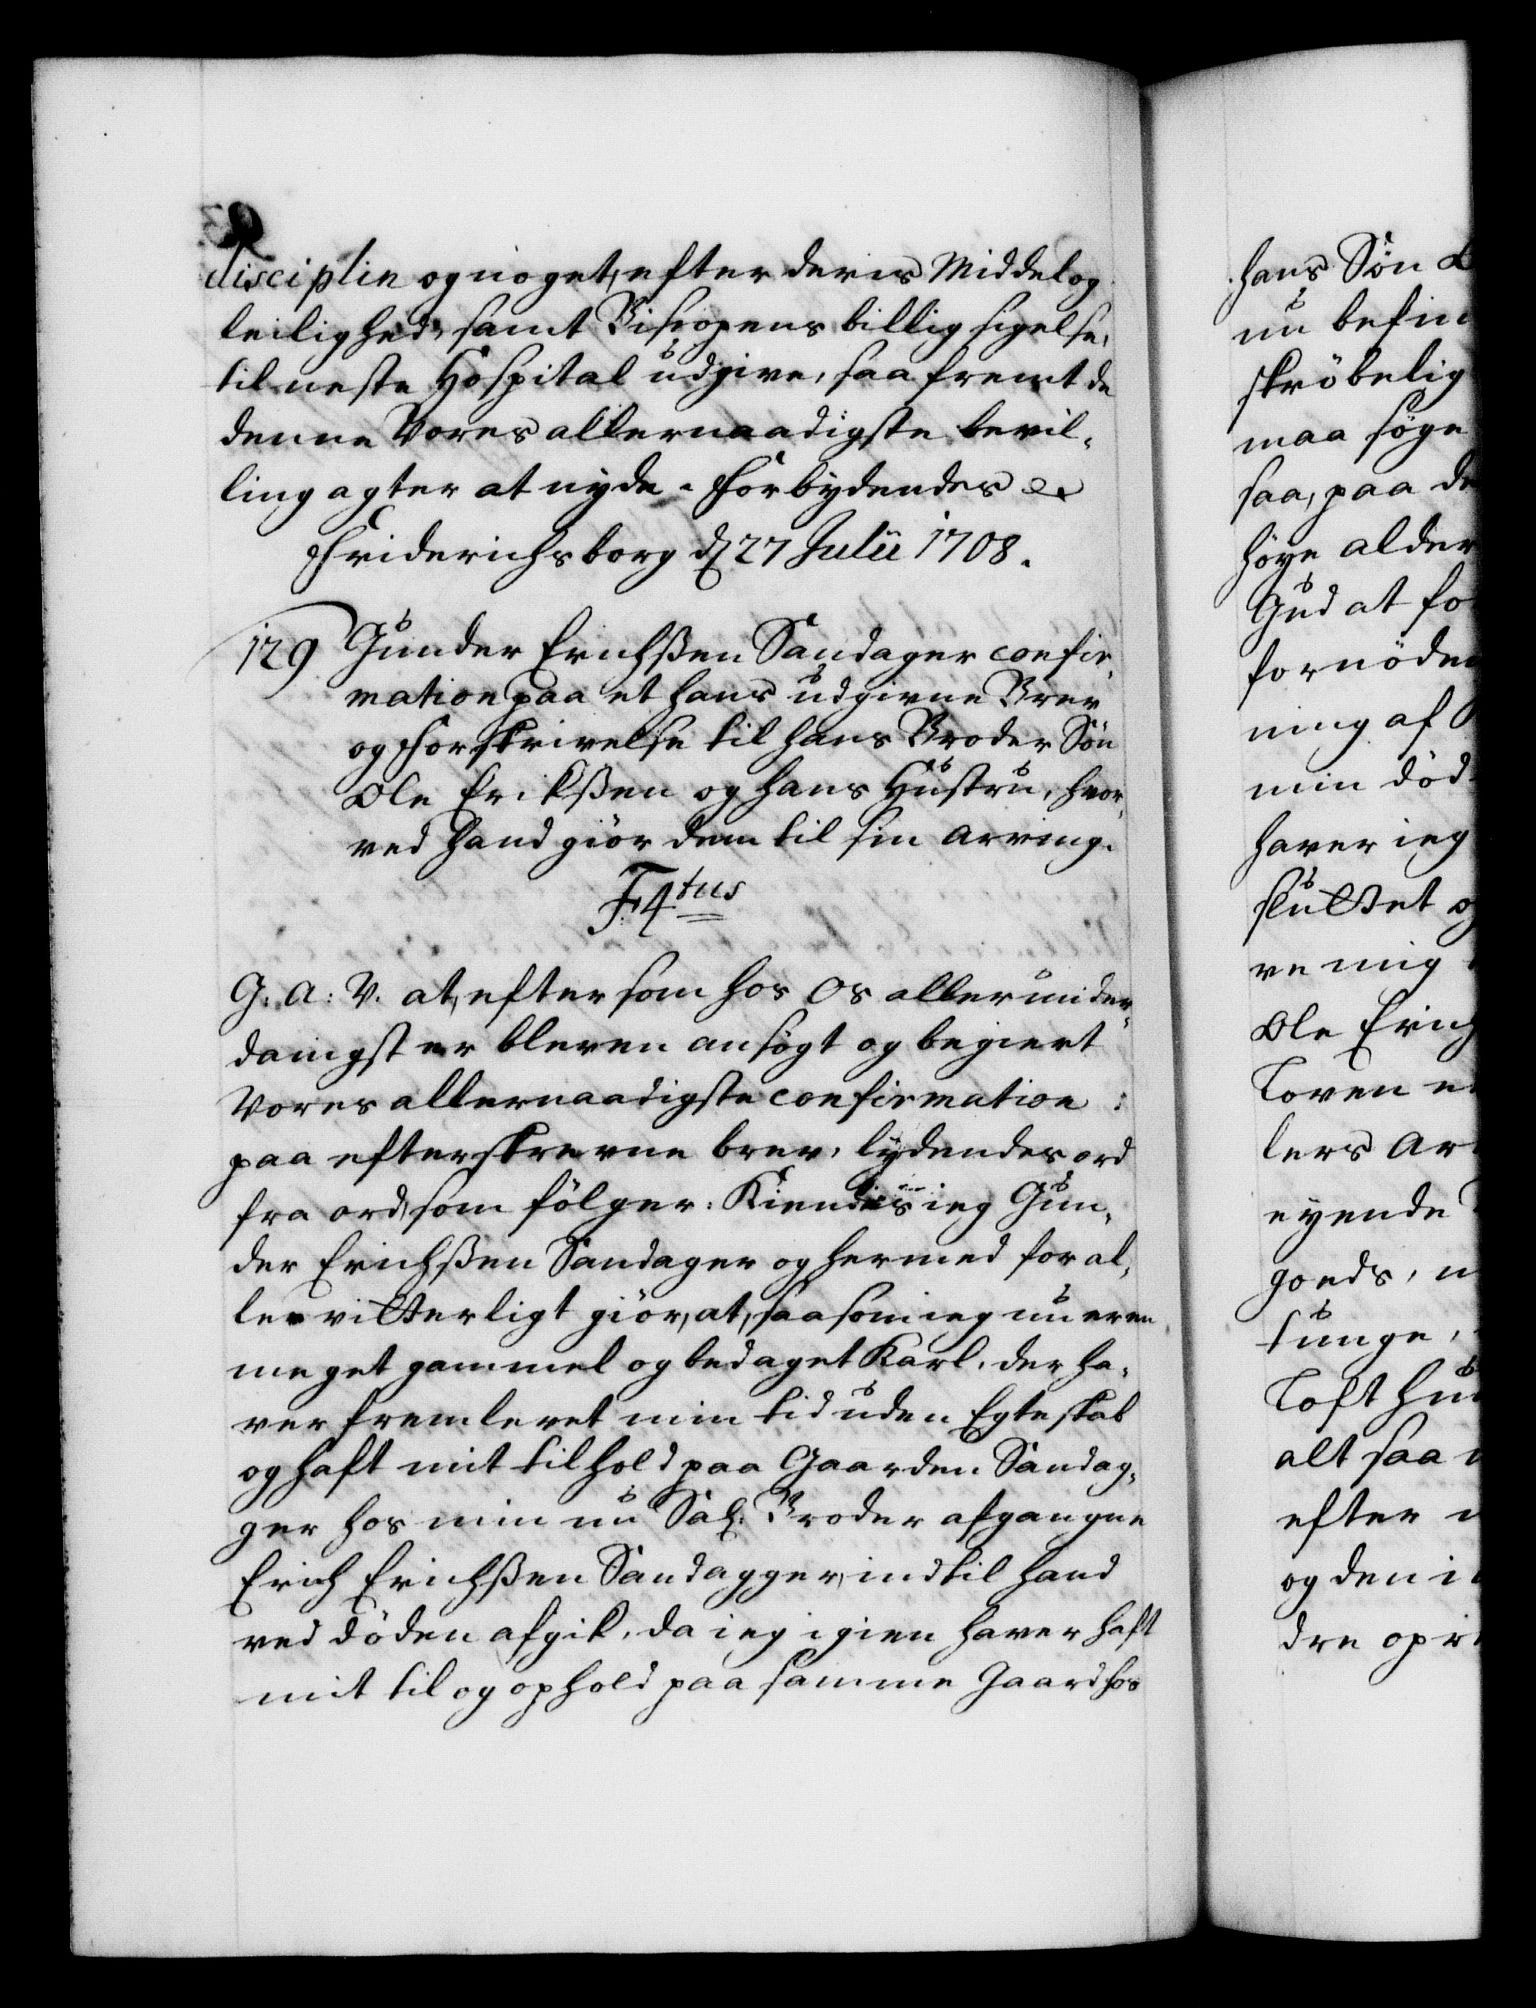 disciplin og noget, efter deris Middel og
leilighed, samt Bispopens billig sigelse,
til neste Hospital udgive, saa fremt de
denne Vores allernaadigste bevil-
ling agter at nyde. Forbydendes &c
Friderichsborg d 27 Julii 1708.
129 Gunder Erichssen Sandager confir-
mation paa et hans udgivne Brev
og Forskrivelse til hans Broder Søn
Ole Erikssen og hans Hustru, hvor-
ved hand giör dem til sin Arving.
F. 4tus
G: A: V. at, eftersom hos Os allerunder-
danigst er bleven ansøgt og begiert
Vores allernaadigste confirmation
paa efterskrevne brev, lydendes ord
fra ord, som fölger: Kiendes ieg Gun-
der Erichssen Sandager og hermed for al-
le vitterligt giör, at, saasom ieg nu er en
meget gammel og bedaget Karl, der ha-
ver fremlevet min tid uden Egteskab
og haft mit tilhold paa Gaarden Sandag-
ger hos min nu Sal: Broder afgangne
Erich Erichssen Sandagger, indtil hand
ved döden afgik, da ieg igien haver haft
mit til og ophold paa samme Gaard hos
hans Søn
nu befin
skröbelig
maa söge
saa, paa de
höye alder
Gud at fo
fornöden
ning af
min död
haver ieg
sluttet og
ve mig
Ole Erich
Loven e
lers Ar
eyende
goeds,
tunge,
Loft hu
alt saa
efter
og den i
dre opr